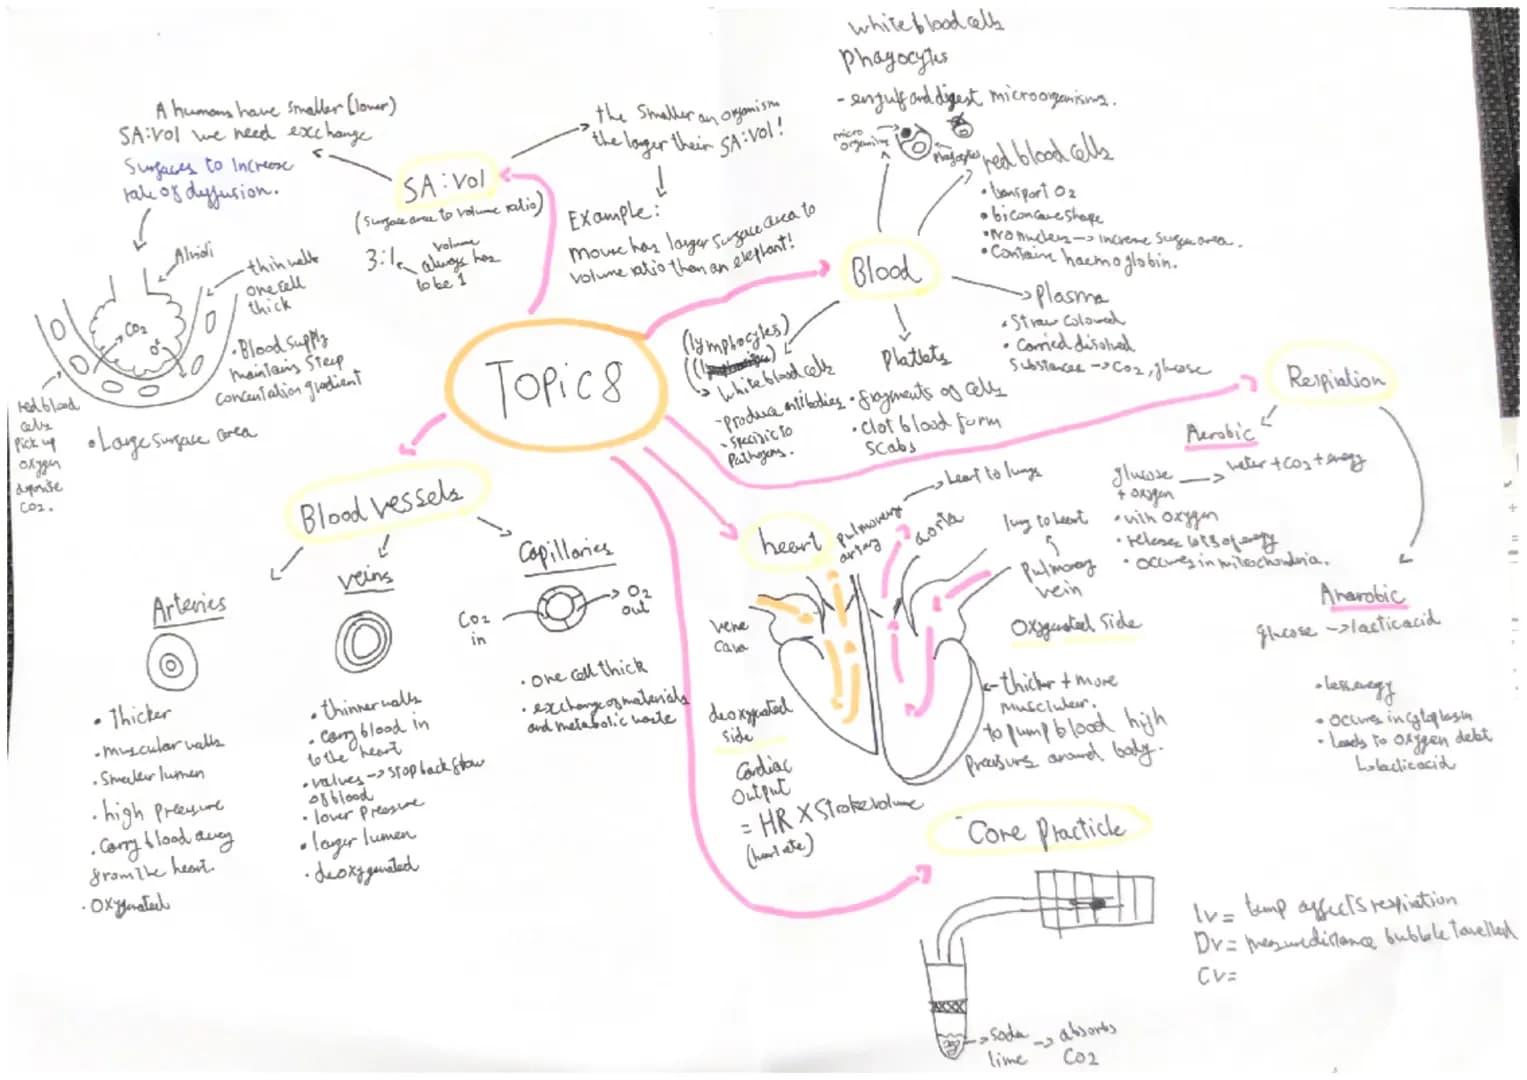 Topic 8
SA:Vol
(Surface area to volume ratio)
3:1
volume
always has
to be 1
A humans have smaller (lower)
SA:Vol we need exchange
Surfaces to Increase
rate of dyffusion.
Alvioli
thin walls
one cell
thick
CO2
O2
• Blood supply
maintains steep
concentration gradient
• Large surface area
red blood
cells
Pick up
oxygen
deposite
CO2.
the Smaller an organism
the larger their SA:Vol!
Example:
Mouse has larger surface area to
volume ratio than an elephant!
Blood
white blood cells
phagocytes
- engulf and digest microorganisms.
micro
organism
Phagocytes
red blood cells
• transport O2
• biconcave shape
• No nucleus -> increase surface area.
• Contains haemoglobin.
Plasma
• Straw coloured
• Carried disolved
Substances -> CO2, glucose
Platlets
• fragments of cells
• clot blood form
scabs
(lymphocytes)
white blood cells
- produce antibodies
- specific to
pathogens.
Respiration
Aerobic
glucose
+ oxygen
-> water + CO2 + energy
• with oxygen
• releases lots of energy
• occures in mitochondria.
Anarobic
glucose -> lactic acid
• less energy
• occures in cytoplasm
• leads to oxygen debt
lactic acid
Blood vessels
Arteries
• Thicker
• muscular walls
• Smaller lumen
• high pressure
• Carry blood away
from the heart.
• Oxygenated
veins
• thinner walls
• carry blood in
to the heart
• valves -> stop back flow
of blood
• lower pressure
• larger lumen
• deoxygenated
Capillaries
CO2
in
O2
out
• one cell thick
• exchange of materials
and metabolic waste
heart
pulmonary
artery
heart to lungs
aorta
lung to heart
Pulmonary
vein
Oxygenated side
vene
cava
deoxygenated
side
thicker + more
musclular.
to pump blood high
pressure around body.
Cardiac
Output
= HR X Stroke volume
(heart rate)
Core Practicle
soda
lime
-> absorbs
CO2
Iv = temp affects respiration
Dv = measure distance bubble travelled
CV =